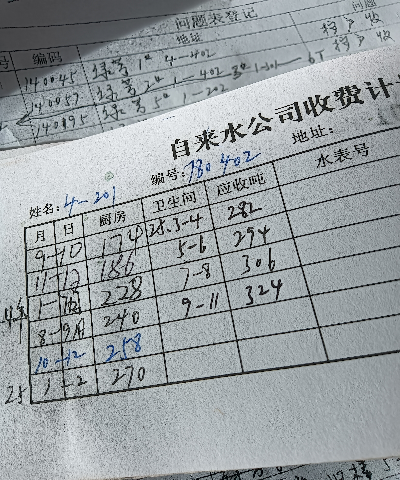 问题表登记
编码 地址
140045 绿苇1# 4-402
140057 绿苇2# 1-402
140095 绿苇5# 1-202 3# 1-201
自来水公司收费计
姓名: 4-201 编号: 780402 地址:
月 日 厨房 卫生间 应收吨 水表号
9-10 174 25.3-4 282
11-12 186 5-6 294
1- 228 7-8 306
8-9月 240 9-11 324
10-12 258
25 1-2 270